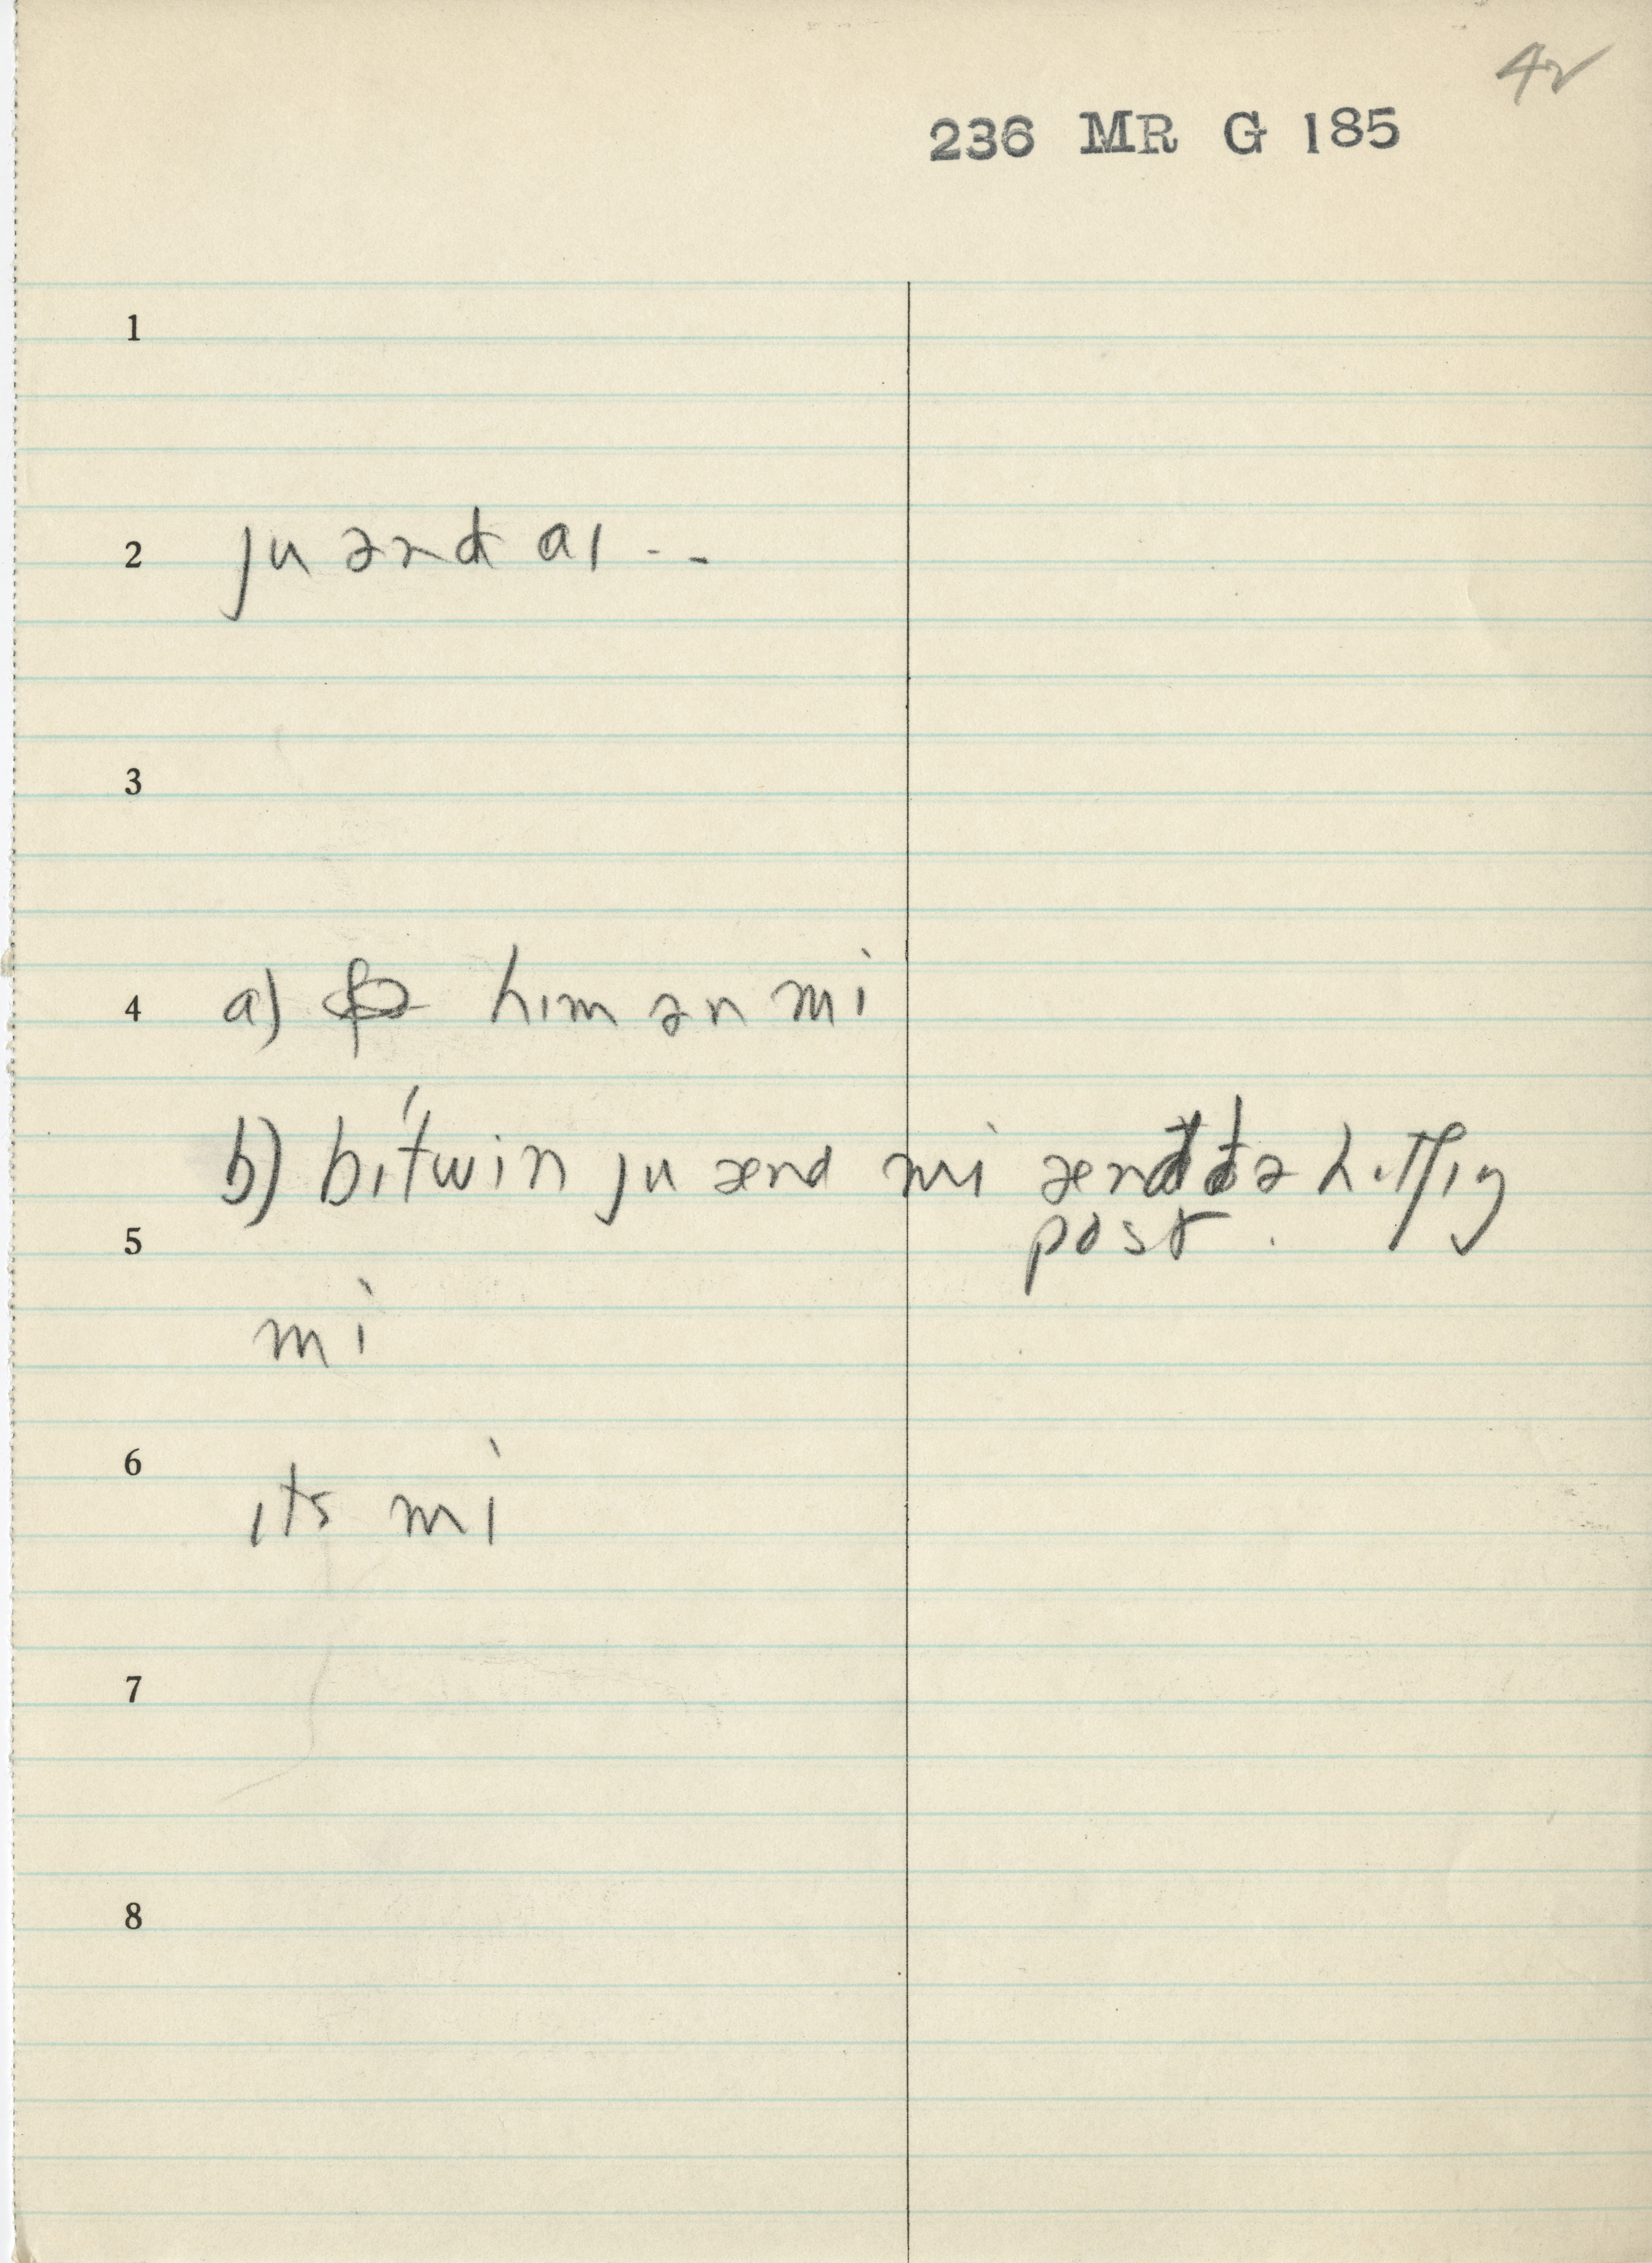 42
236 MR G 185
1
2 ju ənd aɪ --
3
4 a) hɪm ən mi
b) bɪ'twin ju ænd mi ænd ðə hɪtʃɪŋ
post.
5
mi
6
ɪts mi
7
8